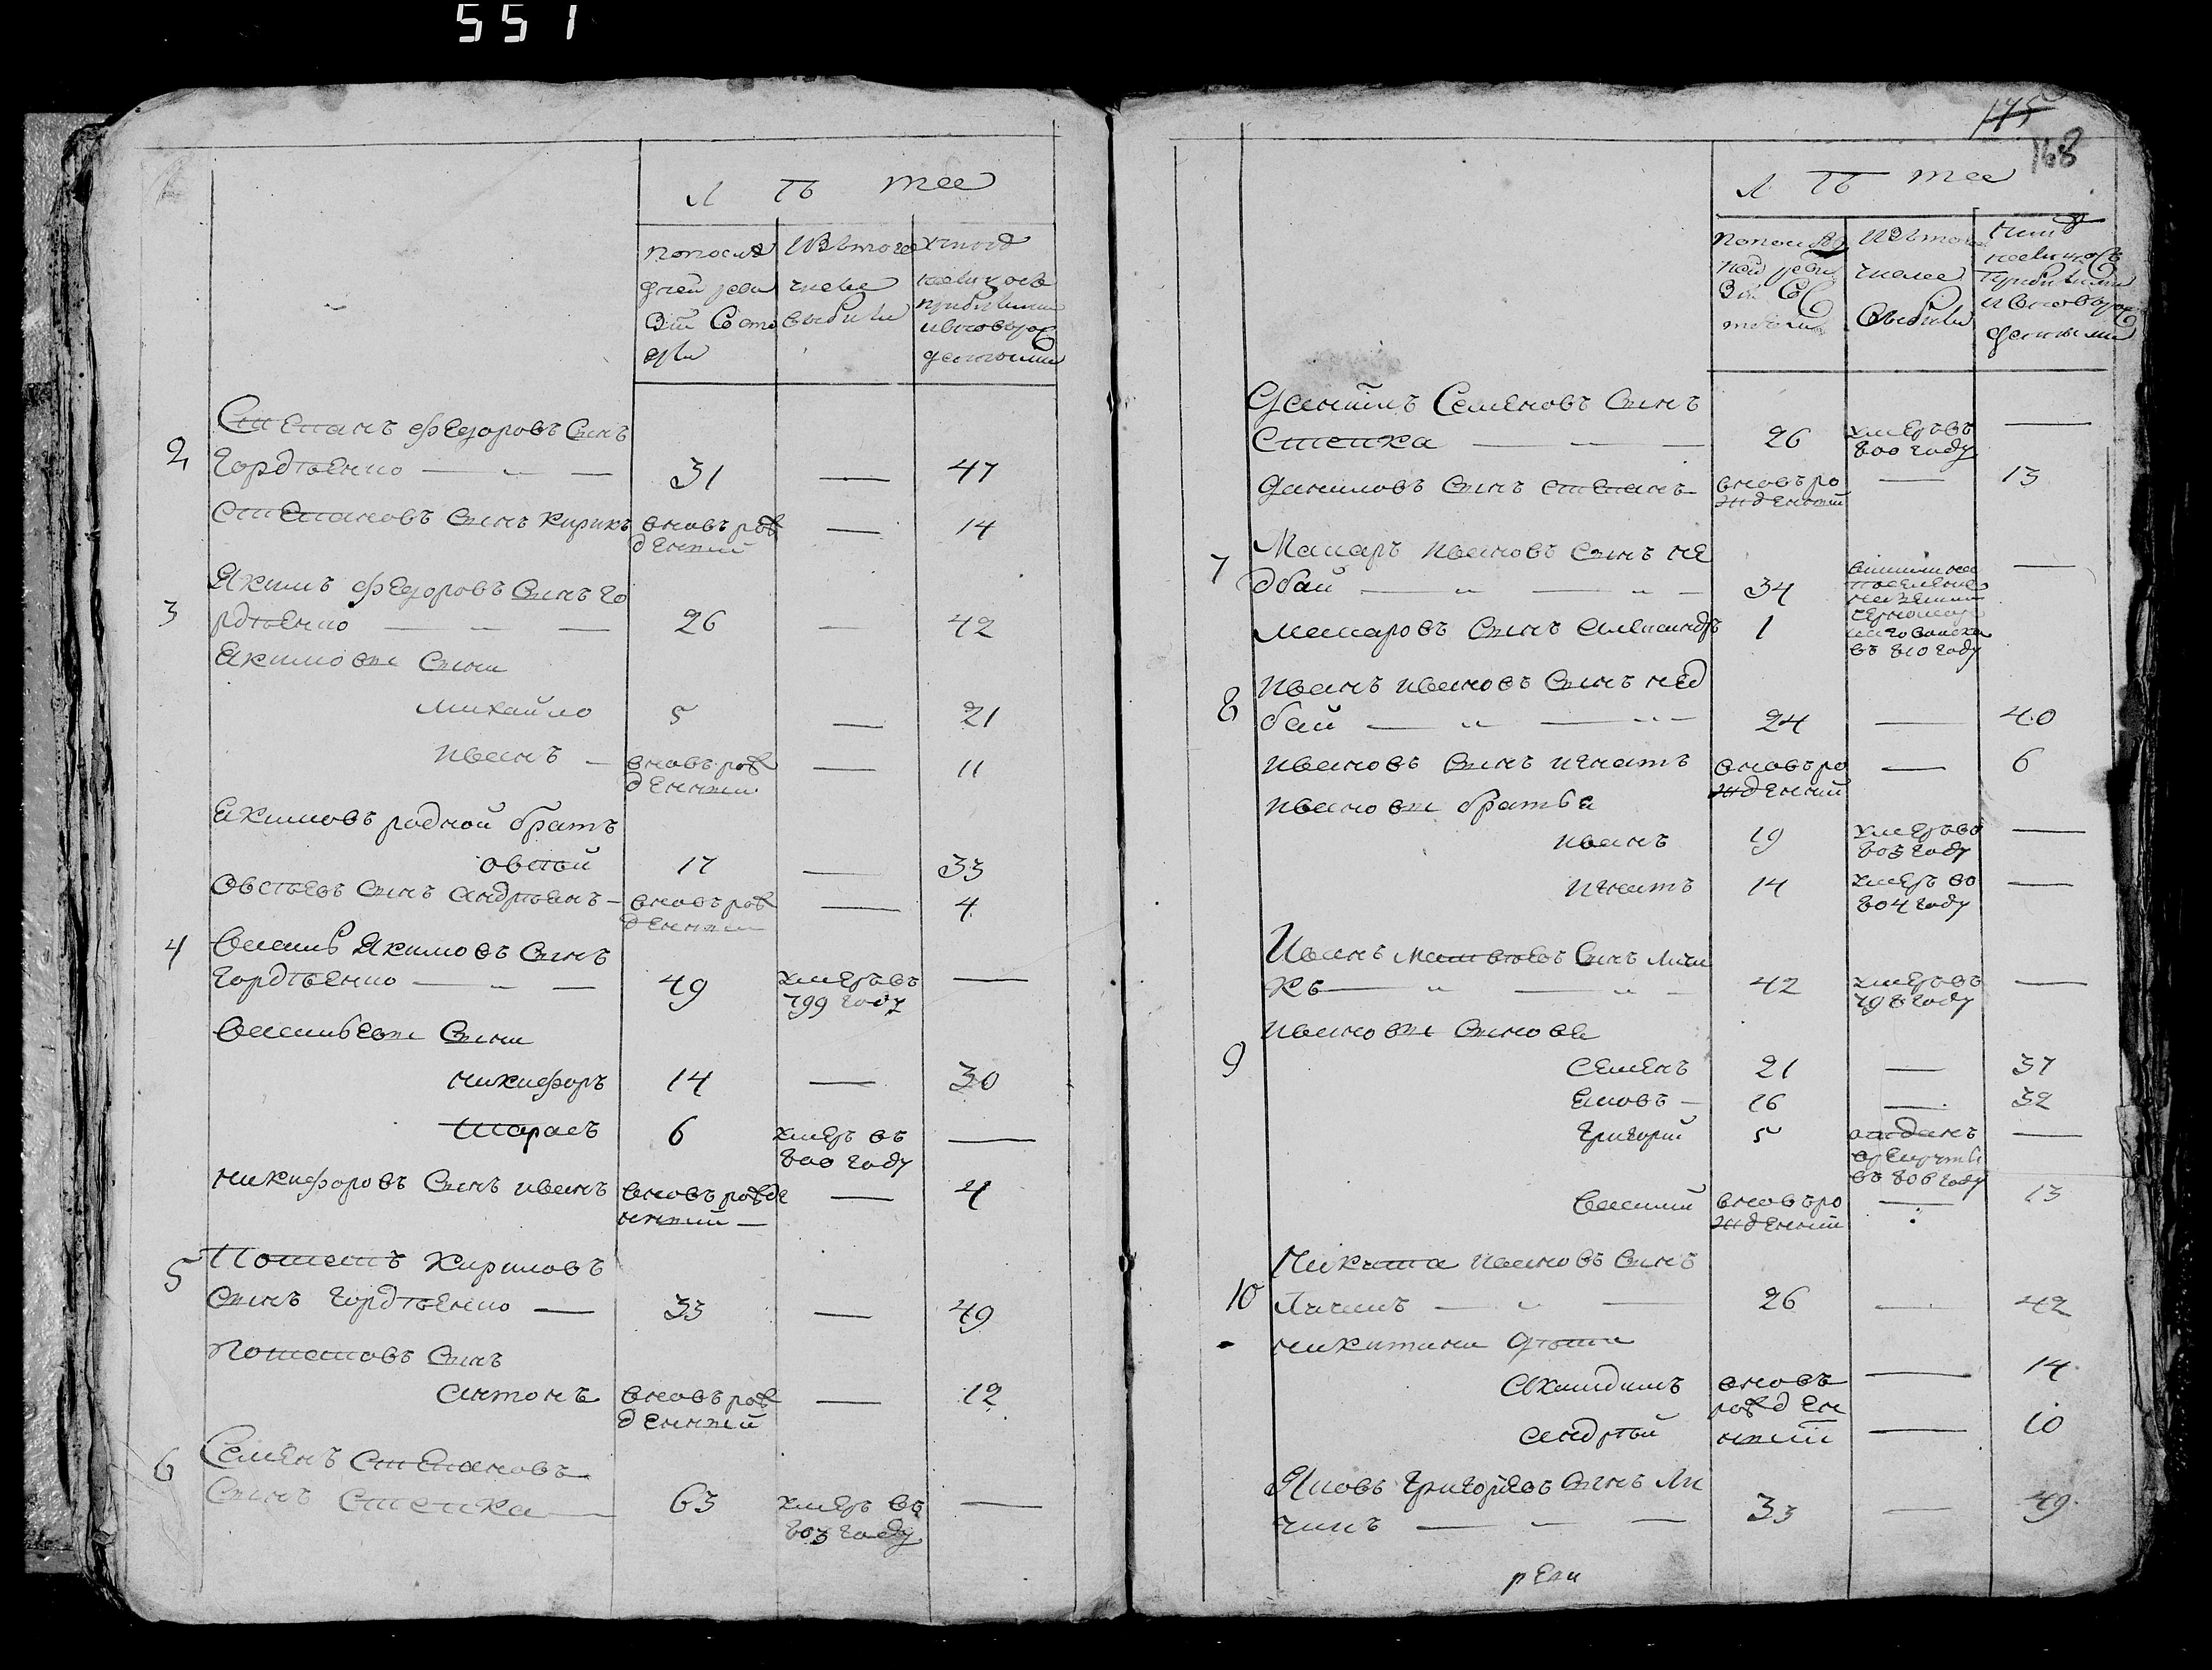 551
Л Ѣ та
попослѣ
дней реви
зіи Состо
яли
Изътого
числа
выбыли
нынѣ
налицо съ
прибылыми
ивновьрож
денными
Степанъ Федоровъ Сынъ
2 Гордѣенко — 31 — 47
Степановъ Сынъ Кирикъ вновь рож
денный — 14
Якимъ Федоровъ Сынъ Го
3 рдѣенко — 26 — 42
Якимовы Сыны
Михайло 5 — 21
Иванъ — вновь рож
денный — 11
Якимовъ родной братъ
овсѣй 17 — 33
Овсѣевъ Сынъ андрѣянъ — вновь рож
денный — 4
4 Василь Якимовъ Сынъ
Гордѣенко — 49 умеръ въ
799 году —
Васильевы Сыны
никифоръ 14 — 30
Тарасъ 6 умеръ въ
800 году —
никифоровъ Сынъ иванъ вновь рожде
нный — 4
5 Потапъ Кириловъ
Сынъ Гордѣенко — 33 — 49
Потаповъ Сынъ
антонъ вновь рож
денный — 12
6 Семенъ Степановъ
Сынъ Стецка — 63 умеръ въ
803 году —
175
168
Л Ѣ та
попослѣд
ней реви
зіи Сос
тояли
Изъ того
числа
Выбыли
Нынѣ
налицо съ
прибылыми
ивновьрож
денными
Данійлъ Семеновъ Сынъ
Стецка — 26 умеръ въ
800 году —
даниловъ Сынъ степанъ вновь ро
жденный — 13
Макаръ Ивановъ Сынъ не
7 дбай — 34
макаровъ Сынъ александръ 1
на
поселение
на земли
Черномор
скаго войска
въ 810 году —
Иванъ ивановъ Сынъ нед
8 бай — 24 — 40
ивановъ Сынъ игнатъ вновь ро
жденный — 6
ивановы братья
иванъ 19 умеръ въ
803 году —
игнатъ 14 умеръ во
804 году —
Иванъ матвѣевъ Сынъ Личи
къ — 42 умеръ въ
798 году —
ивановы Сынове
9 Семенъ 21 — 37
Яковъ — 16 — 32
Григорий 5 отданъ
в рекруты
въ 806 году —
Василий вновь ро
жденный — 13
Никита ивановъ Сынъ
10 Личикъ — 26 — 42
никитины дѣти
вновь
рожден
ный — 14
андрѣй — 10
Яковъ Григорьевъ Сынъ Ли
чикъ — 33 — 49